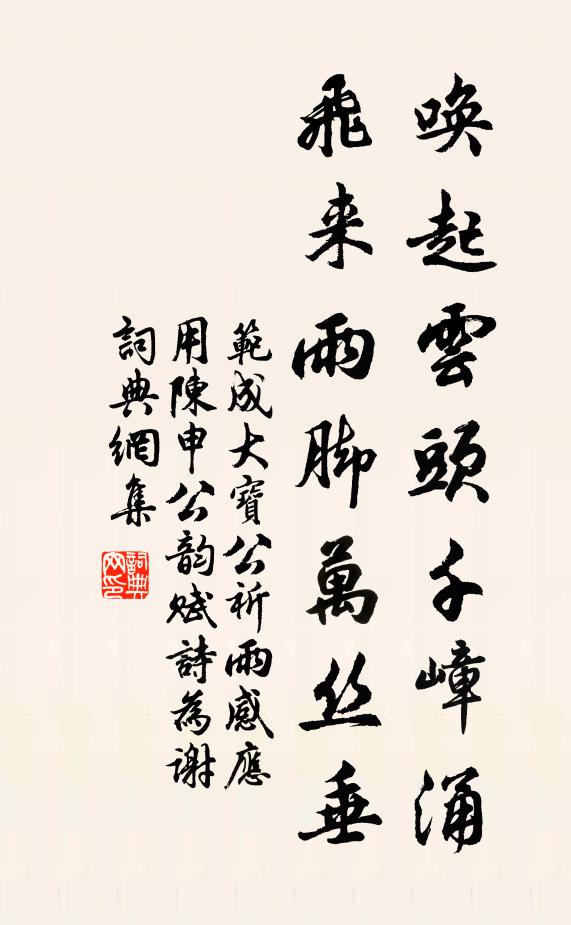 喚起雲頭千嶂涌
飛来雨脚萬丝垂
範成大寶公祈雨感應
用陳申公韵赋詩為謝
詞典網集
詞典網印